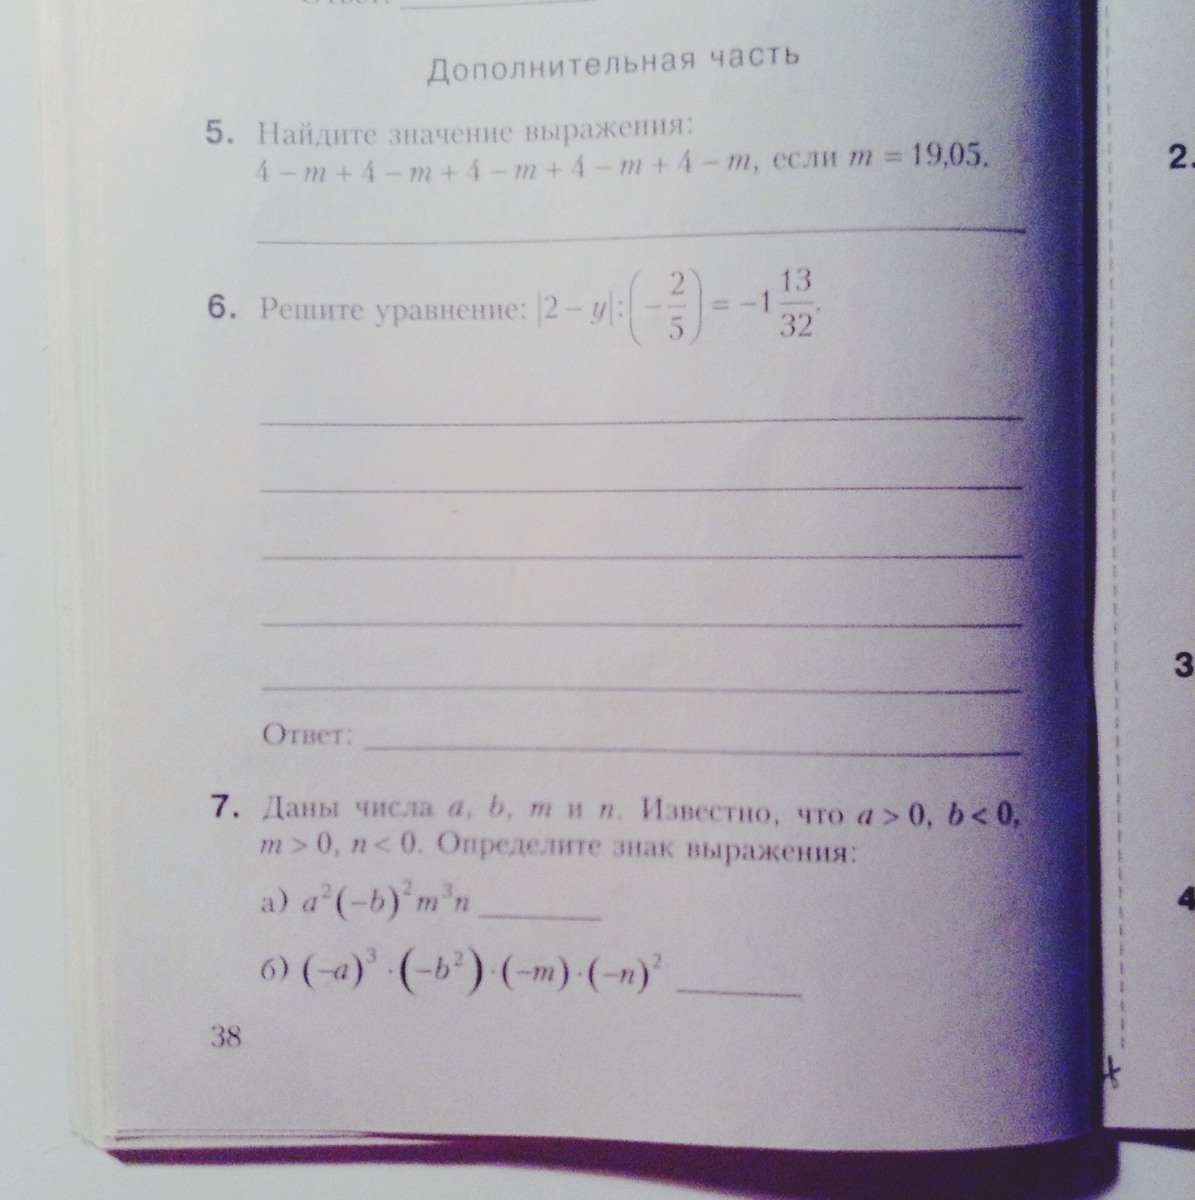 Ответ:
Дополнительная часть
5. Найдите значение выражения:
4 – m + 4 – m + 4 – m + 4 – m + 4 – m, если m = 19,05.
6. Решите уравнение: |2 – y| : (–2/5) = –1 13/32.
Ответ:
7. Даны числа a, b, m и n. Известно, что a > 0, b < 0,
m > 0, n < 0. Определите знак выражения:
а) a²(–b)²m³n
б) (–a)³ · (–b²) · (–m) · (–n)²
38
2.
3
4